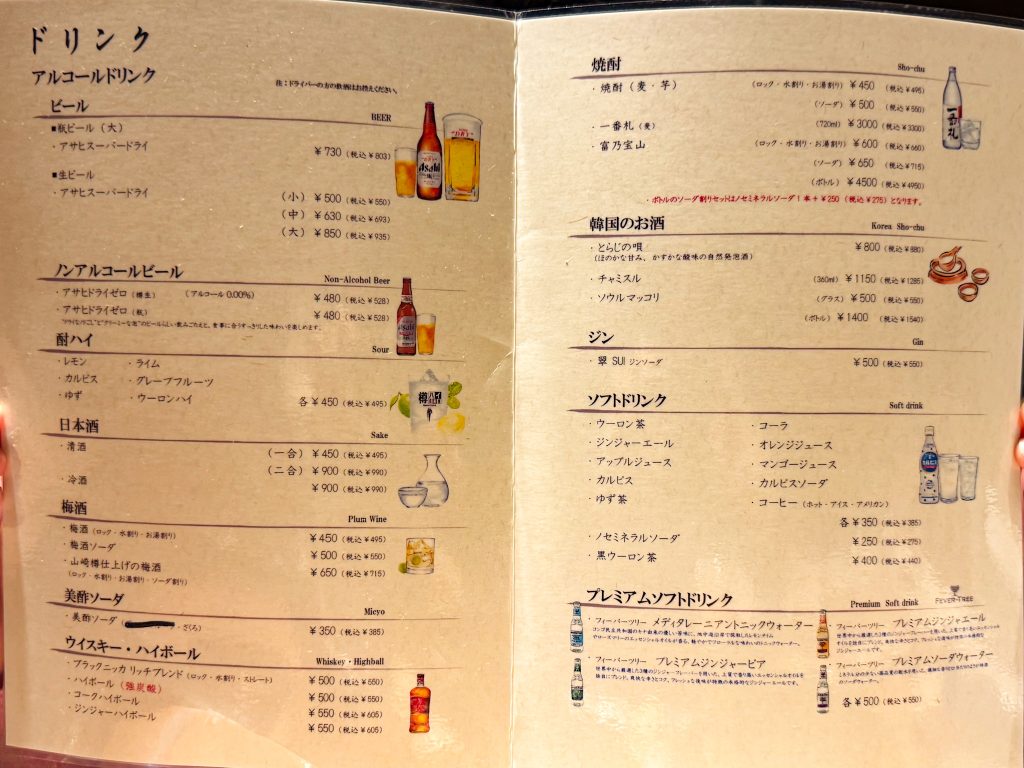 ドリンク
アルコールドリンク
注：ドライバーの方の飲酒はお控えください。
ビール BEER
■瓶ビール（大）
・アサヒスーパードライ ￥730（税込￥803）
■生ビール
・アサヒスーパードライ （小）￥500（税込￥550）
（中）￥630（税込￥693）
（大）￥850（税込￥935）
ノンアルコールビール Non-Alcohol Beer
・アサヒドライゼロ（樽生） （アルコール0.00%） ￥480（税込￥528）
・アサヒドライゼロ（瓶） ￥480（税込￥528）
酎ハイ Sour
・レモン ・ライム
・カルピス ・グレープフルーツ
・ゆず ・ウーロンハイ 各￥450（税込￥495）
日本酒 Sake
・清酒 （一合）￥450（税込￥495）
（二合）￥900（税込￥990）
・冷酒 ￥900（税込￥990）
梅酒 Plum Wine
・梅酒（ロック・水割り・お湯割り） ￥450（税込￥495）
・梅酒ソーダ ￥500（税込￥550）
・山崎樽仕上げの梅酒 ￥650（税込￥715）
（ロック・水割り・お湯割り・ソーダ割り）
美酢ソーダ Micyo
・美酢ソーダ ・ざくろ） ￥350（税込￥385）
ウイスキー・ハイボール Whiskey・Highball
・ブラックニッカ リッチブレンド（ロック・水割り・ストレート） ￥500（税込￥550）
・ハイボール（強炭酸） ￥500（税込￥550）
・コークハイボール ￥550（税込￥605）
・ジンジャーハイボール ￥550（税込￥605）
Asahi
樽ハイ
焼酎 Sho-chu
・焼酎（麦・芋） （ロック・水割り・お湯割り）￥450（税込￥495）
（ソーダ）￥500（税込￥550）
・一番札（麦） （720ml）￥3000（税込￥3300）
・富乃宝山 （ロック・水割り・お湯割り）￥600（税込￥660）
（ソーダ）￥650（税込￥715）
（ボトル）￥4500（税込￥4950）
・ボトルのソーダ割りセットはノセミネラルソーダ1本＋￥250（税込￥275）となります。
一番札
韓国のお酒 Korea Sho-chu
・とらじの唄 ￥800（税込￥880）
（ほのかな甘み、かすかな酸味の自然発泡酒）
・チャミスル （360ml）￥1150（税込￥1285）
・ソウルマッコリ （グラス）￥500（税込￥550）
（ボトル）￥1400（税込￥1540）
ジン Gin
・翠 SUI ジンソーダ ￥500（税込￥550）
ソフトドリンク Soft drink
・ウーロン茶 ・コーラ
・ジンジャーエール ・オレンジジュース
・アップルジュース ・マンゴージュース
・カルピス ・カルピスソーダ
・ゆず茶 ・コーヒー（ホット・アイス・アメリカン）
各￥350（税込￥385）
・ノセミネラルソーダ ￥250（税込￥275）
・黒ウーロン茶 ￥400（税込￥440）
プレミアムソフトドリンク Premium Soft drink
FEVER-TREE
・フィーバーツリー メディタレーニアントニックウォーター
・フィーバーツリー プレミアムジンジャーエール
・フィーバーツリー プレミアムジンジャービア
・フィーバーツリー プレミアムソーダウォーター
各￥500（税込￥550）